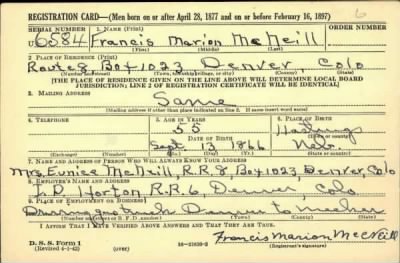 REGISTRATION CARD—(Men born on or after April 28, 1877 and on or before February 16, 1897)
SERIAL NUMBER 1. NAME (Print) ORDER NUMBER
U 6584 Francis Marion McNeill
(First) (Middle) (Last)
2. PLACE OF RESIDENCE (Print)
Route 8 Box 1023 Denver Colo
(Number and street) (Town, township, village, or city) (County) (State)
[THE PLACE OF RESIDENCE GIVEN ON THE LINE ABOVE WILL DETERMINE LOCAL BOARD
JURISDICTION; LINE 2 OF REGISTRATION CERTIFICATE WILL BE IDENTICAL]
3. MAILING ADDRESS
Same
(Mailing address if other than place indicated on line 2. If same insert word same)
4. TELEPHONE 5. AGE IN YEARS 6. PLACE OF BIRTH
55 Hastings
DATE OF BIRTH (Town or county)
Sept 13 1866 Nebr.
(Exchange) (Number) (Mo.) (Day) (Yr.) (State or country)
7. NAME AND ADDRESS OF PERSON WHO WILL ALWAYS KNOW YOUR ADDRESS
Mrs. Eunice McNeill, R.R. 8, Box 1023 Denver, Colo
8. EMPLOYER'S NAME AND ADDRESS
Horton R.R. 6 Denver, Colo
9. PLACE OF EMPLOYMENT OR BUSINESS
Driving truck Denver to
(Number and street or R. F. D. number) (Town) (County) (State)
I AFFIRM THAT I HAVE VERIFIED ABOVE ANSWERS AND THAT THEY ARE TRUE.
Francis Marion McNeill
D. S. S. Form 1
(Revised 4-1-42) (over) (Registrant's signature)